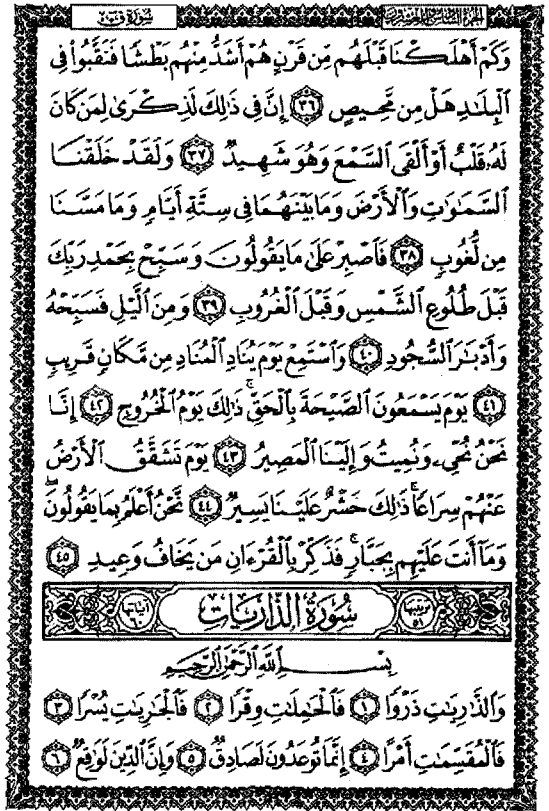 سُورَةُ قٓ
الجزء السادس والعشرون
وَكَمْ أَهْلَكْنَا قَبْلَهُم مِّن قَرْنٍ هُمْ أَشَدُّ مِنْهُم بَطْشًا فَنَقَّبُوا۟ فِى
ٱلْبِلَٰدِ هَلْ مِن مَّحِيصٍ ٣٦ إِنَّ فِى ذَٰلِكَ لَذِكْرَىٰ لِمَن كَانَ
لَهُۥ قَلْبٌ أَوْ أَلْقَى ٱلسَّمْعَ وَهُوَ شَهِيدٌ ٣٧ وَلَقَدْ خَلَقْنَا
ٱلسَّمَٰوَٰتِ وَٱلْأَرْضَ وَمَا بَيْنَهُمَا فِى سِتَّةِ أَيَّامٍ وَمَا مَسَّنَا
مِن لُّغُوبٍ ٣٨ فَٱصْبِرْ عَلَىٰ مَا يَقُولُونَ وَسَبِّحْ بِحَمْدِ رَبِّكَ
قَبْلَ طُلُوعِ ٱلشَّمْسِ وَقَبْلَ ٱلْغُرُوبِ ٣٩ وَمِنَ ٱلَّيْلِ فَسَبِّحْهُ
وَأَدْبَٰرَ ٱلسُّجُودِ ٤٠ وَٱسْتَمِعْ يَوْمَ يُنَادِ ٱلْمُنَادِ مِن مَّكَانٍ قَرِيبٍ
٤١ يَوْمَ يَسْمَعُونَ ٱلصَّيْحَةَ بِٱلْحَقِّ ۚ ذَٰلِكَ يَوْمُ ٱلْخُرُوجِ ٤٢ إِنَّا
نَحْنُ نُحْىِۦ وَنُمِيتُ وَإِلَيْنَا ٱلْمَصِيرُ ٤٣ يَوْمَ تَشَقَّقُ ٱلْأَرْضُ
عَنْهُمْ سِرَاعًا ۚ ذَٰلِكَ حَشْرٌ عَلَيْنَا يَسِيرٌ ٤٤ نَّحْنُ أَعْلَمُ بِمَا يَقُولُونَ ۖ
وَمَآ أَنتَ عَلَيْهِم بِجَبَّارٍ ۖ فَذَكِّرْ بِٱلْقُرْءَانِ مَن يَخَافُ وَعِيدِ ٤٥
ترتيبها ٥١ سُورَةُ الذَّارِيَات آياتها ٦٠
بِسْمِ ٱللَّهِ ٱلرَّحْمَٰنِ ٱلرَّحِيمِ
وَٱلذَّٰرِيَٰتِ ذَرْوًا ١ فَٱلْحَٰمِلَٰتِ وِقْرًا ٢ فَٱلْجَٰرِيَٰتِ يُسْرًا ٣
فَٱلْمُقَسِّمَٰتِ أَمْرًا ٤ إِنَّمَا تُوعَدُونَ لَصَادِقٌ ٥ وَإِنَّ ٱلدِّينَ لَوَٰقِعٌ ٦